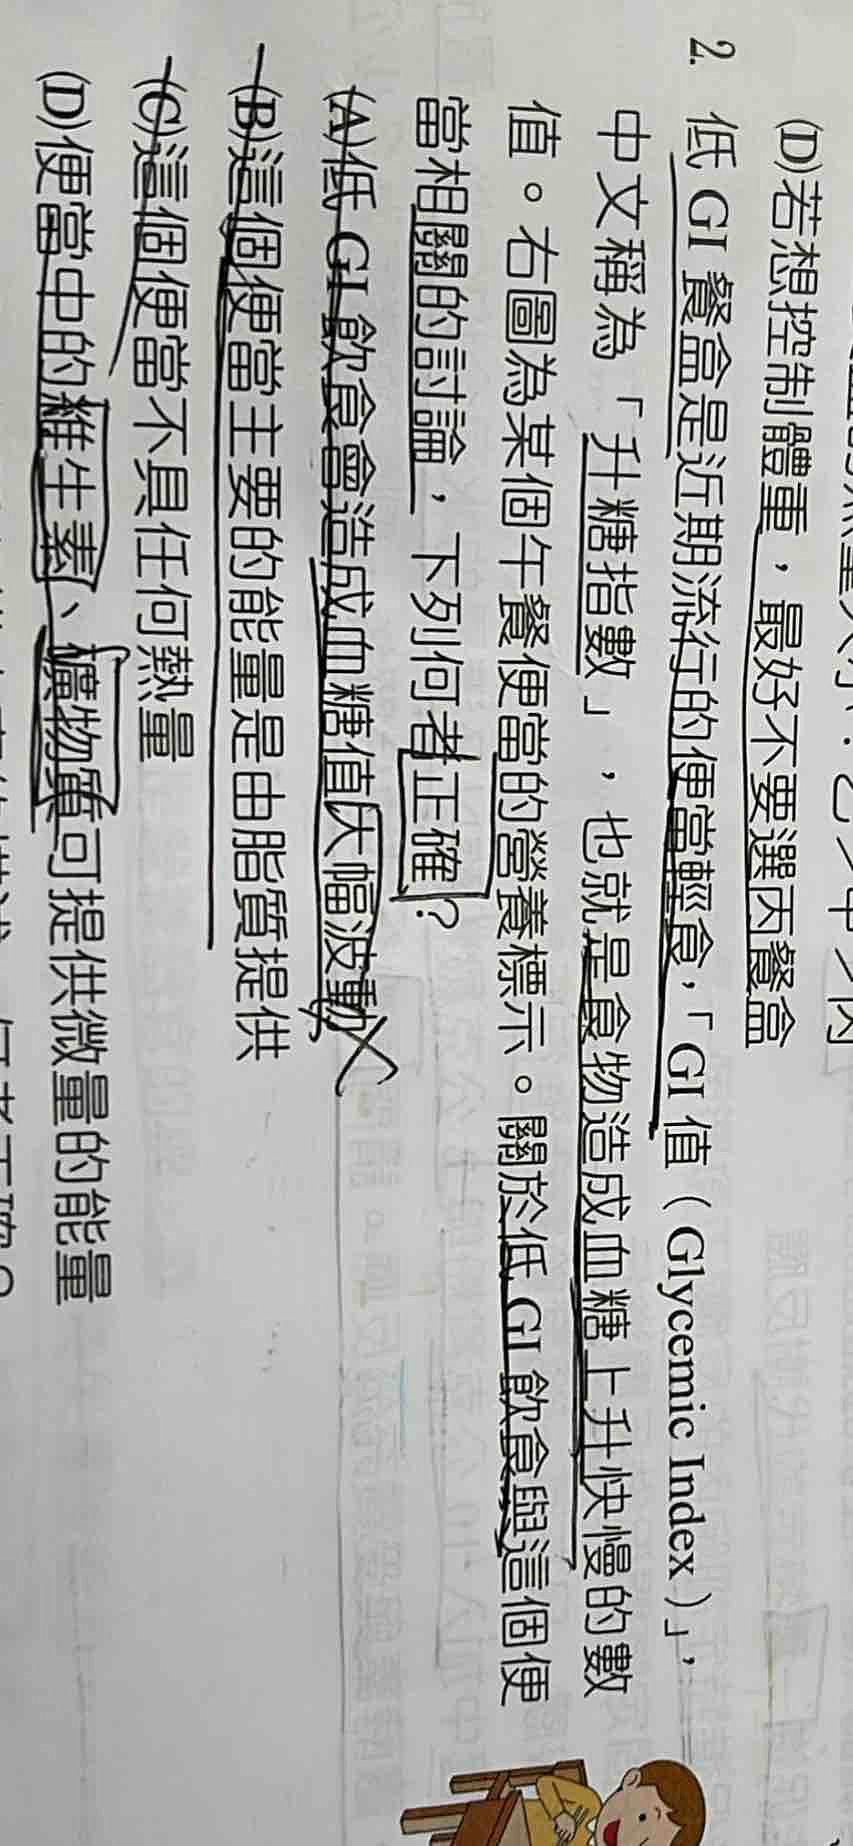 (D)若想控制體重，最好不要選丙餐盒
2. 低 GI 餐盒是近期流行的便當輕食，「GI 值（Glycemic Index）」，
中文稱為「升糖指數」，也就是食物造成血糖上升快慢的數
值。右圖為某個午餐便當的營養標示。關於低 GI 飲食與這個便
當相關的討論，下列何者正確？
(A)低 GI 飲食會造成血糖值大幅波動
(B)這個便當主要的能量是由脂質提供
(C)這個便當不具任何熱量
(D)便當中的維生素、礦物質可提供微量的能量